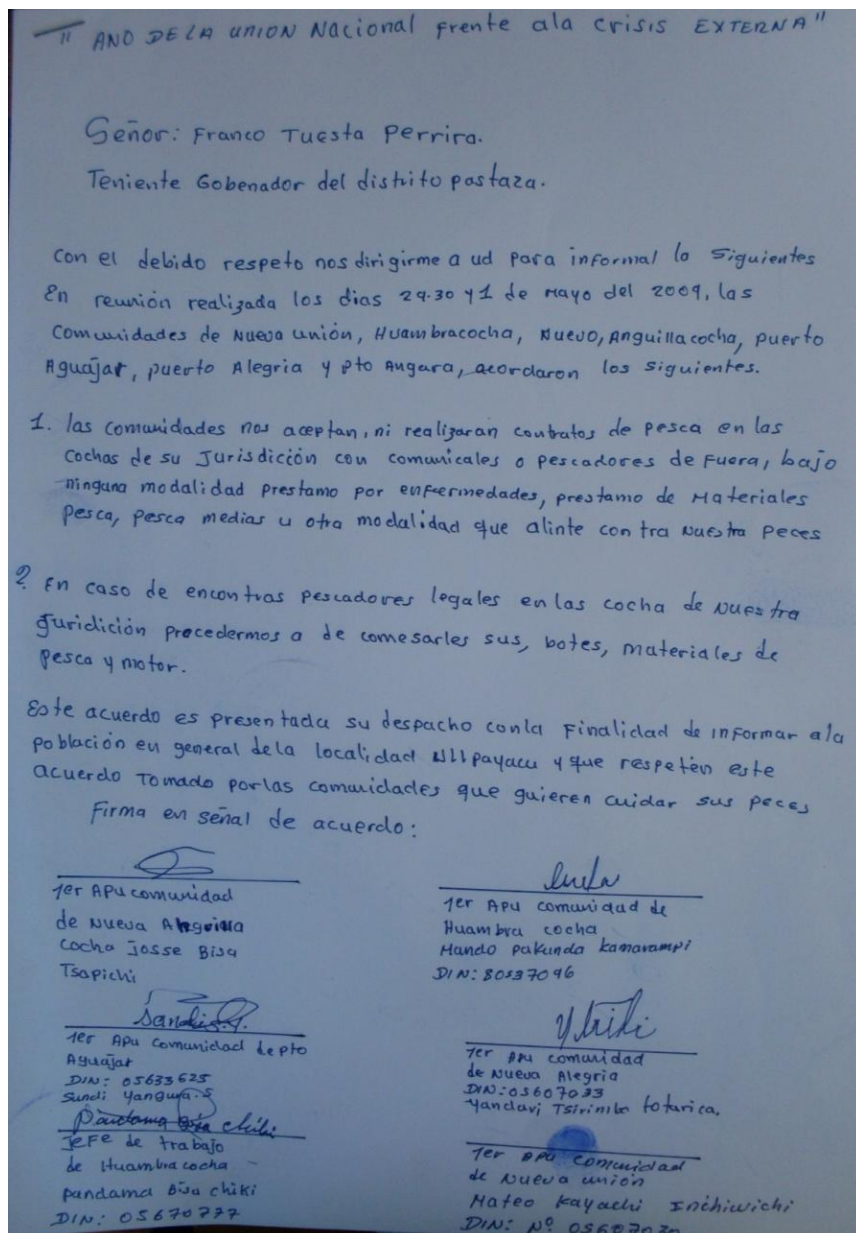 " AÑO DE LA UNION Nacional Frente ala crisis EXTERNA"
Señor: Franco Tuesta Perrira.
Teniente Gobenador del distrito pastaza.
Con el debido respeto nos dirigirme a ud para informal lo siguientes
En reunión realizada los dias 29.30 y 1 de Mayo del 2009, las
Comunidades de Nueva unión, Huambracocha, Nuevo, Anguillacocha, puerto
Aguajar, puerto Alegria y pto Angara, acordaron los siguientes.
1. las comunidades nos aceptan, ni realizaran contratos de pesca en las
cochas de su Jurisdicción con comunicales o pescadores de Fuera, bajo
ninguna modalidad prestamo por enfermedades, prestamo de Materiales
pesca, pesca medias u otra modalidad que alinte contra Nuestra peces
2 En caso de encontras pescadores legales en las cocha de Nuestra
Juridición procedermos a de comesarles sus, botes, materiales de
pesca y motor.
Este acuerdo es presentada su despacho conla Finalidad de informar ala
población en general dela localidad Ullpayacu y que respeten este
acuerdo Tomado porlas comunidades que quieren cuidar sus peces
Firma en señal de acuerdo:
1er Apu comunidad
de Nueva Anguilla
cocha Josse Bisa
Tsapichi
1er Apu comunidad de
Huambra cocha
Mando pakunda kamarampi
DIN: 80537096
1er Apu Comunidad de pto
Aguajar
DIN: 05633625
Sundi Yangura.S
1er Apu comunidad
de Nueva Alegria
DIN: 05607033
Yandari Tsirimbo totarica.
Pandama Bisa chiki
Jefe de trabajo
de Huambra cocha
pandama Bisa chiki
DIN: 05670777
1er Apu comunidad
de Nueva unión
Mateo Kayachi Inchiwichi
DIN: Nº